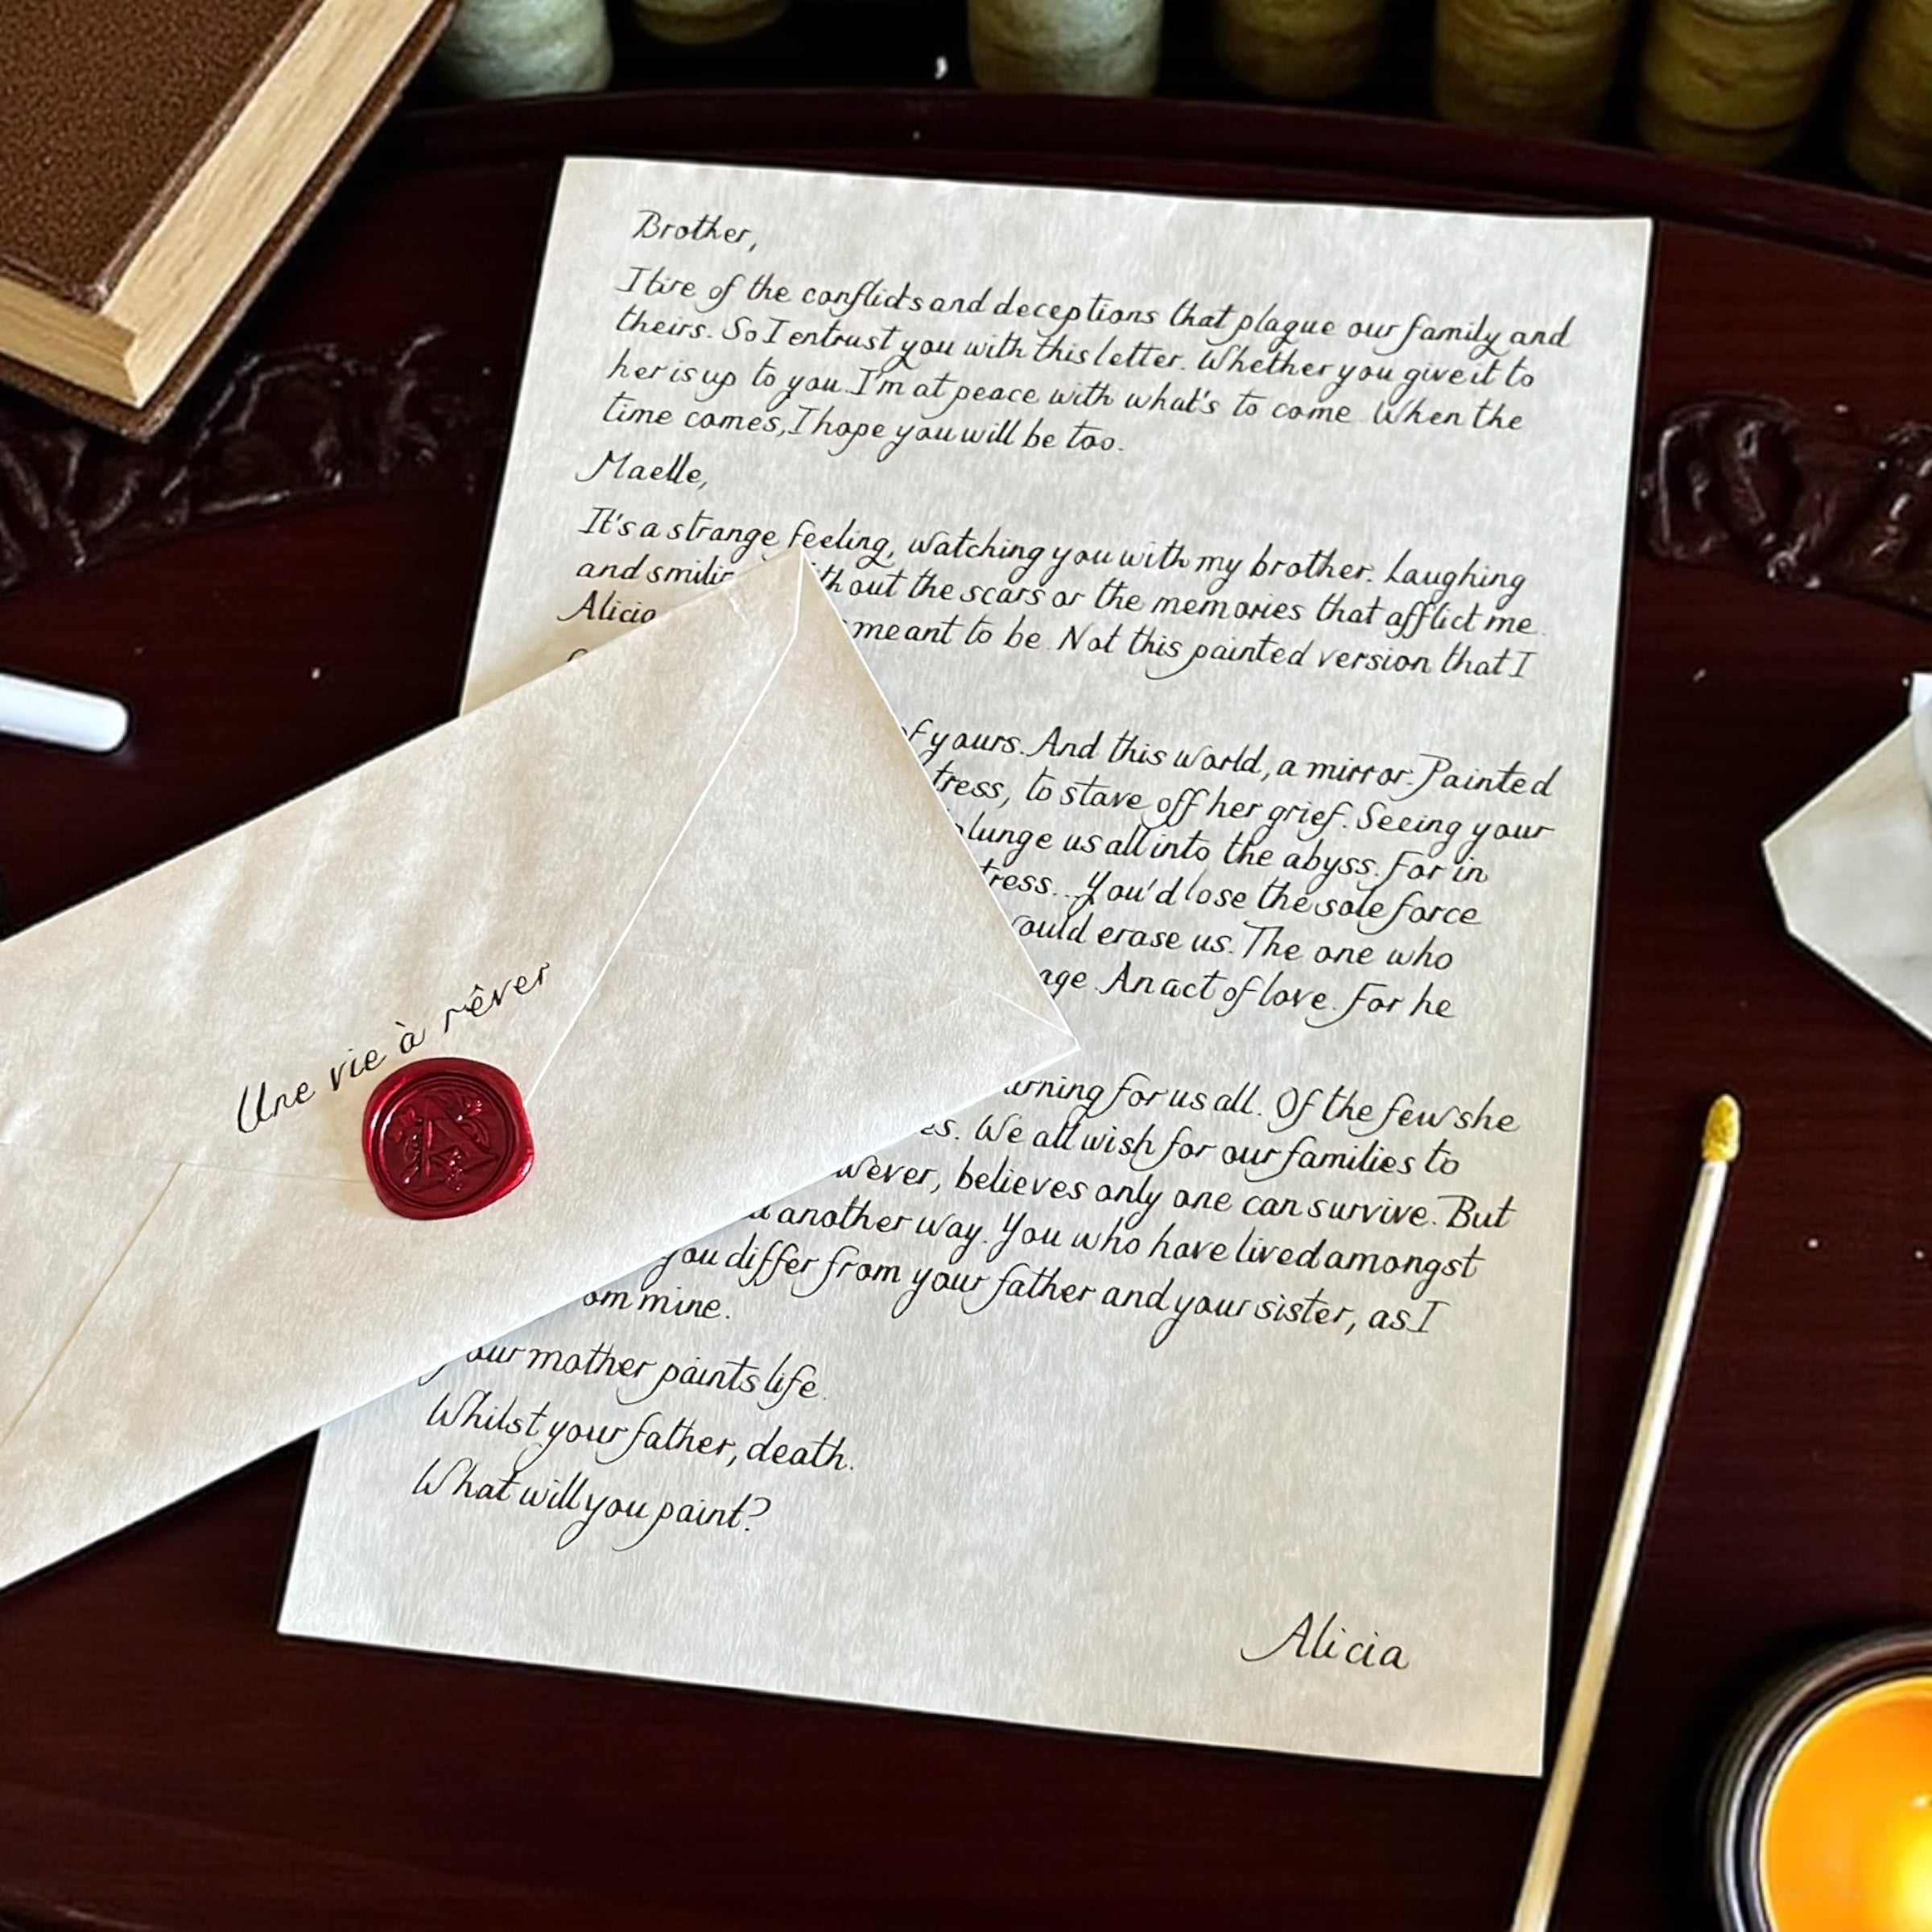 Brother,
I tire of the conflicts and deceptions that plague our family and
theirs. So I entrust you with this letter. Whether you give it to
her is up to you. I'm at peace with what's to come. When the
time comes, I hope you will be too.
Maelle,
It's a strange feeling, watching you with my brother. Laughing
and out the scars or the memories that afflict me.
Alicia meant to be. Not this painted version that I
of yours. And this world, a mirror. Painted
to stave off her grief. Seeing your
us all into the abyss. For in
You'd lose the sole force
erase us. The one who
An act of love. For he
for us all. Of the few she
We all wish for our families to
believes only one can survive. But
another way. You who have lived amongst
you differ from your father and your sister, as I
mine.
mother paints life.
Whilst your father, death.
What will you paint?
Alicia
Une vie à rêver